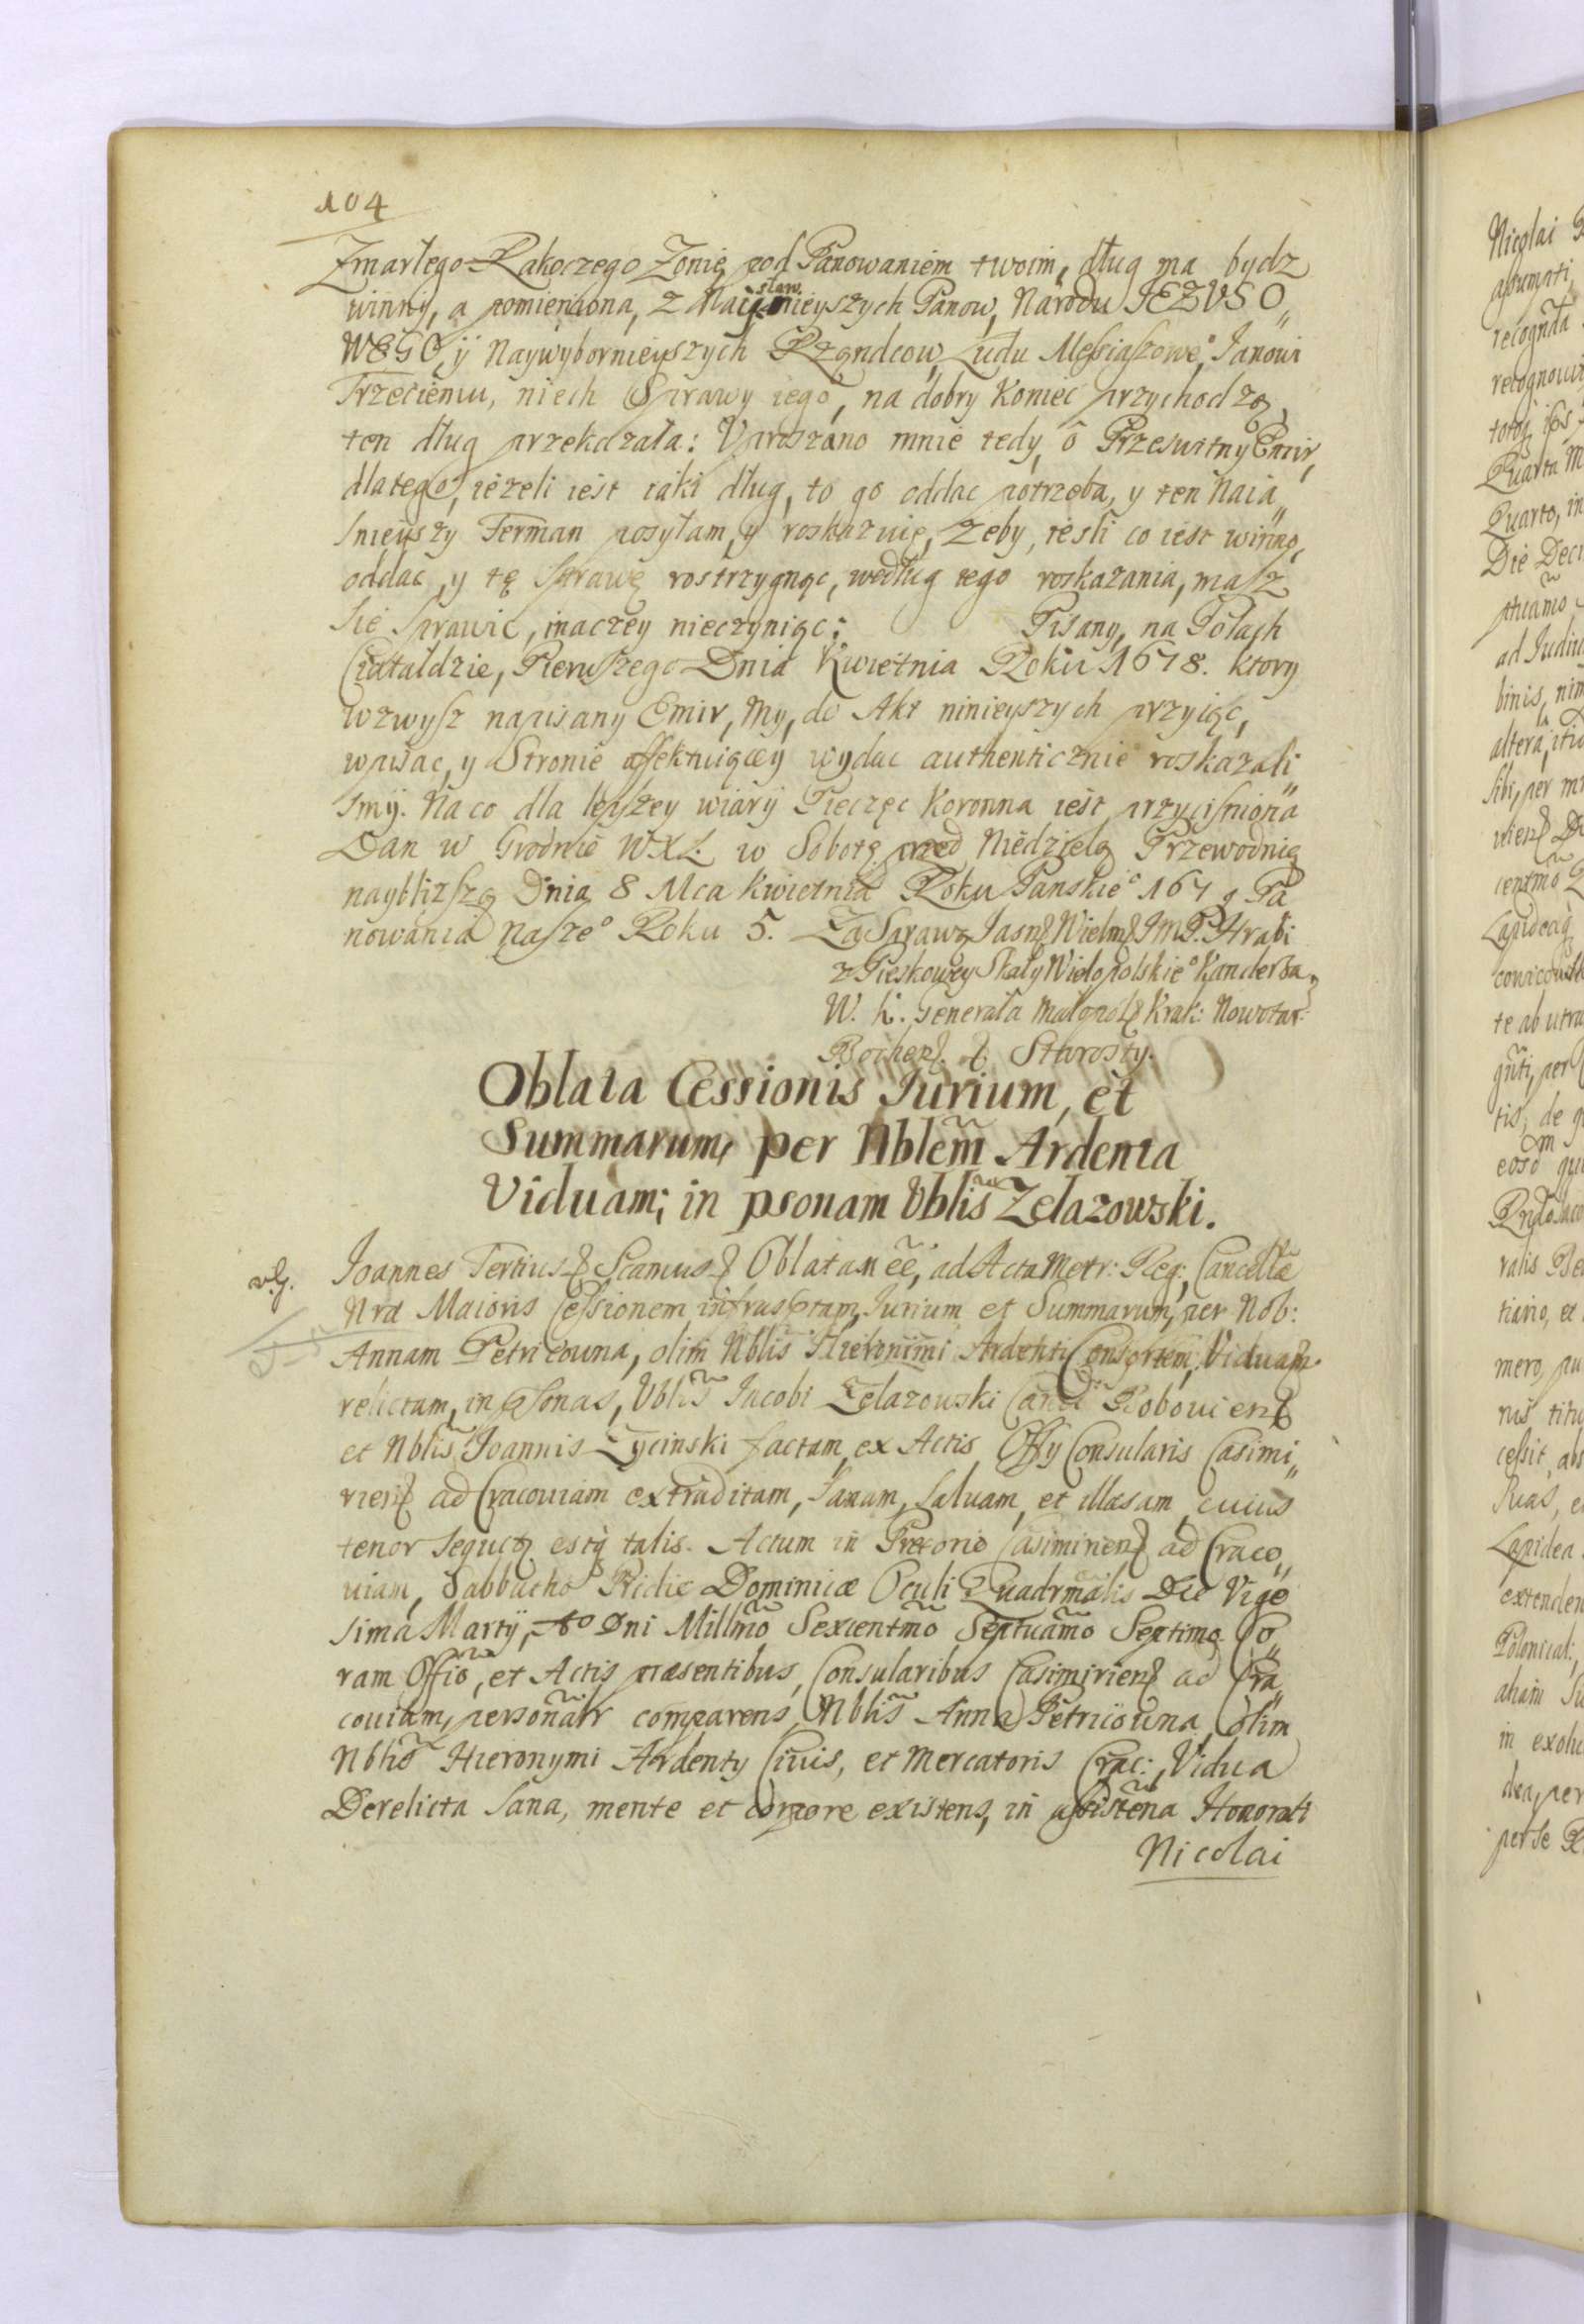 104
Zmarłego Rakoczego Zonie pod Panowaniem twoim, dług ma bydz
winny, a pomieniona, z Naiꝭsławnieyszych Panow, Narodu JEZVSO„
WEGO, ÿ Naywybornieyszych Rządcow, Ludu Messiaszowe°, Janowi
Trzeciemu, niech Sprawy iego, na dobry Koniec przychodzą,
ten dług przekazała: Vproszono mnie tedy, o Przeswitny Emir,
dlatego, ieżeli iest iaki dług, to go oddac potrzeba, y ten Naia„
snieyszy Ferman posyłam, y roskazuię, żeby, iesli co iest winno,
oddac, y tę sprawę rostrzygnąc, według tego roskazania, masz
sie sprawic, inaczey nieczyniąc: Pisany, na Polach
Czataldzie, Pierwszego Dnia Kwietnia Roku 1678. ktory
wzwysz napisany Emir, My, do Akt ninieyszych przyiąc,
wpisac, y Stronie affektuiącey wydac authenticznie roskazali
smÿ. Na co dla lepszey wiarÿ Pieczęc Koronna iest przycisniona
Dan w Grodnie W.X.L. w Sobotę przed Niedzielą Przewodnią
naybliższą Dnia 8 Mca Kwietnia Roku Panskie° 1679 Pa
nowania nasze° Roku 5. Za Sprawą Jasn Wielm JmP. Hrabi
z Pieskowey Skały Wielopolskie° Kanclerza
W. K. Generała Małopol Krak: Nowotar:
Bochen. Starosty.
Oblata Cessionis Iurium, et
Summarum, per Nblem Ardenta
Viduam; in psonam Vblis Zelazowski.
Joannes Tertius Scamus Oblatam eē, ad Acta Metr: Reg: Cancellæ
Nræ Maioris Cessionem infrasptam, Iurium et Summarum, per Nob:
Annam Petricouna, olim Nblis Hieronimi Ardenti Consortem, Viduam
relictam, in psonas, Vblis Iacobi Zelazowski Bobouien
et Nblis Joannis Zycinski factam, ex Actis Offÿ Consularis Casimi„
rien ad Cracouiam extraditam, sanam, saluam, et illæsam, cuius
tenor sequitꝛ estq talis. Actum in Prætorio Casimirien ad Craco„
uiam, Sabbatho Pridie Dominicæ Oculi Quadrmalis Die Vige
sima Martÿ, A° Dni Millmo Sexcentmo Septuamo Septimo. Co„
ram Offio, et Actis præsentibus, Consularibus Casimirien ad Cra„
couiam, personalr comparens, Nblis Anna Petricouna, olim
Nblis Hieronymi Ardenty Ciuis, et Mercatoris Crac: Vidua
Derelicta sana, mente et corpore existens, in assistena Honorati
Nicolai